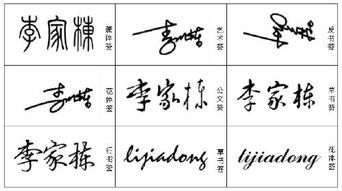 李家栋 篆体签
李家栋 艺术签
李家栋 反书签
李家栋 花体签
李家栋 公文签
李家栋 草书签
李家栋 行书签
lijiadong 草书签
lijiadong 花体签